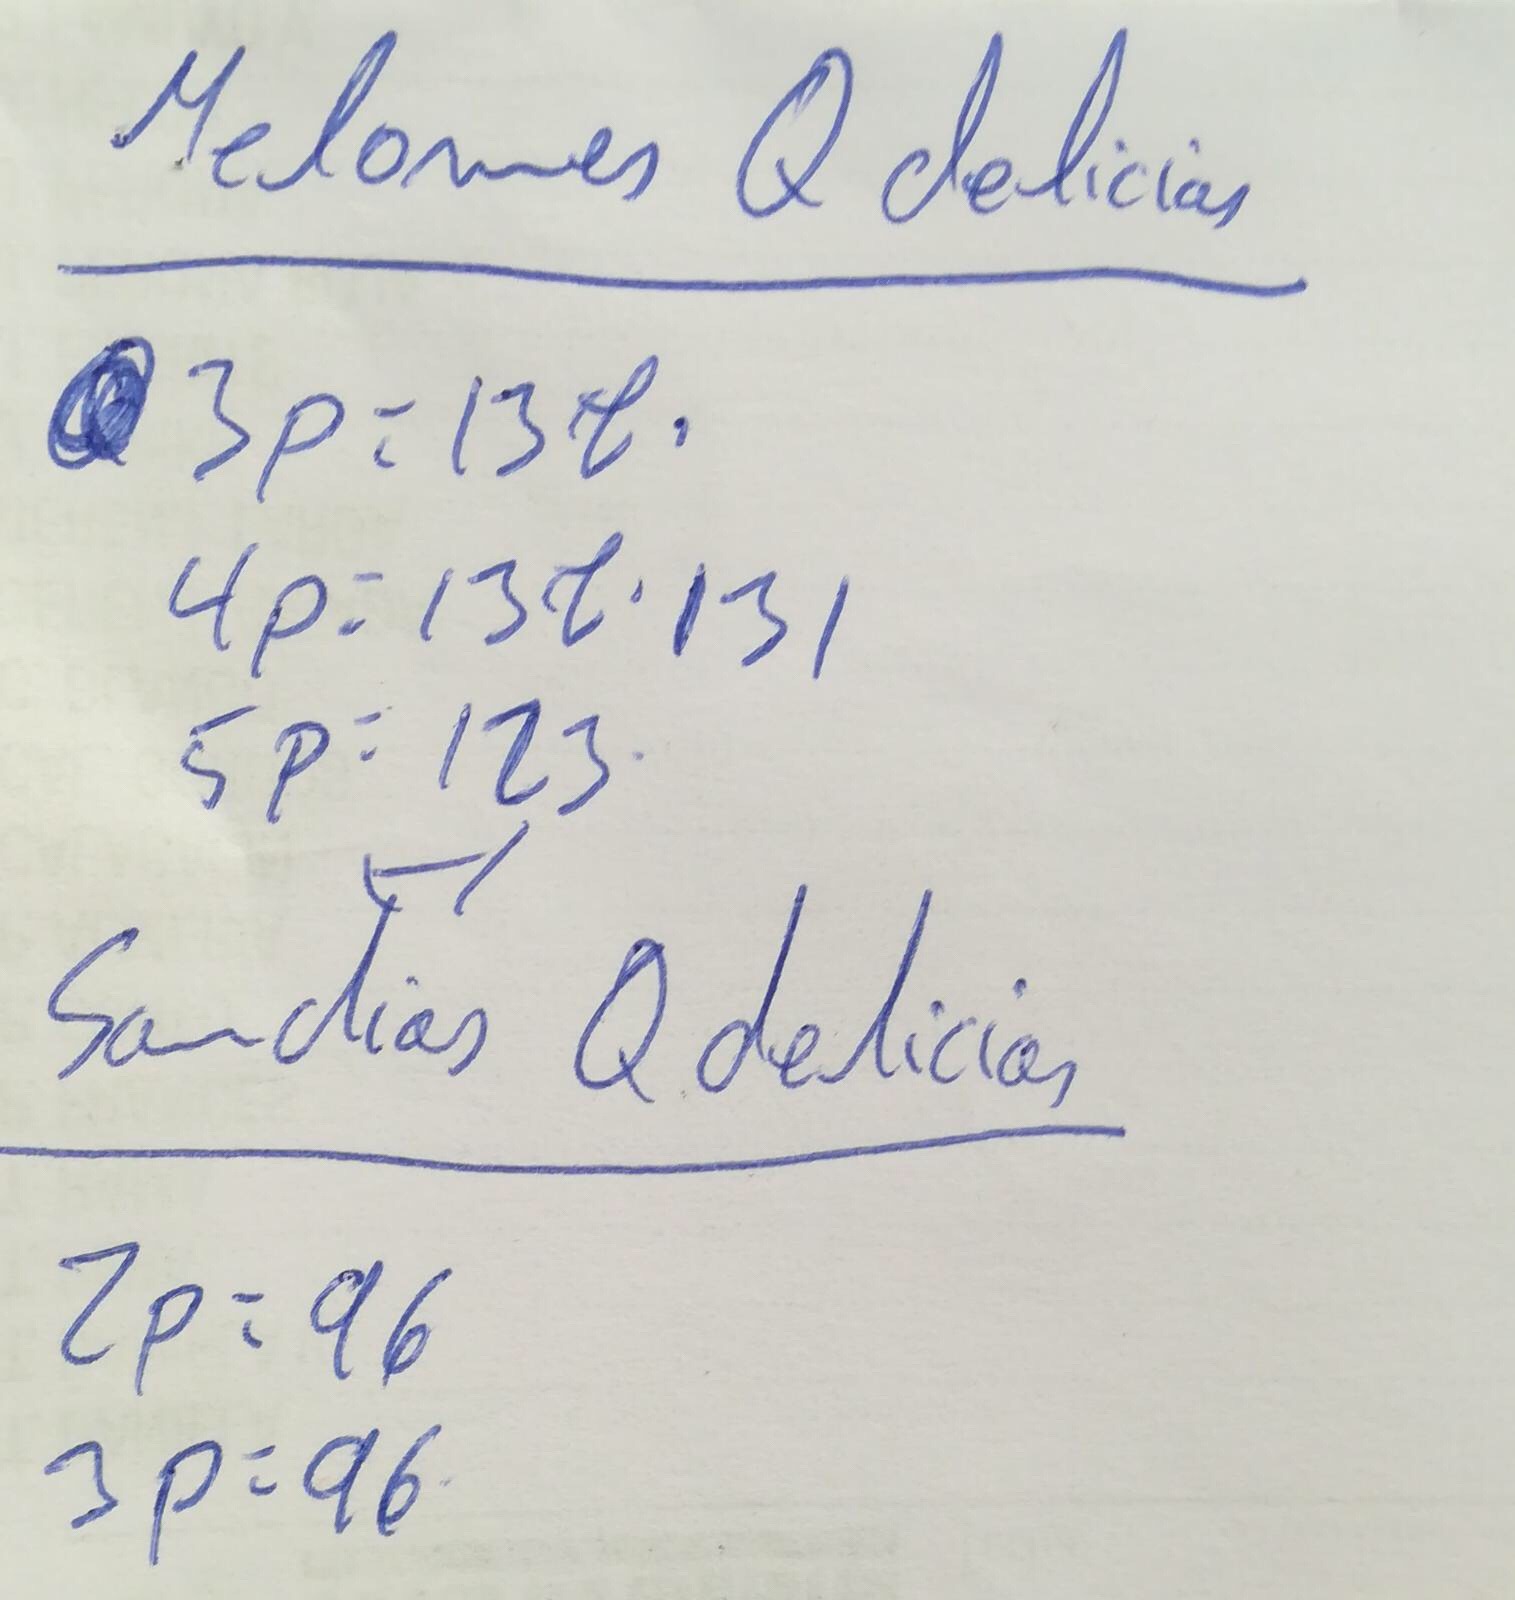 Melones Q delicias
3p = 137.
4p = 137. 131
5p = 123.
Sandias Q delicias
2p = 96
3p = 96.